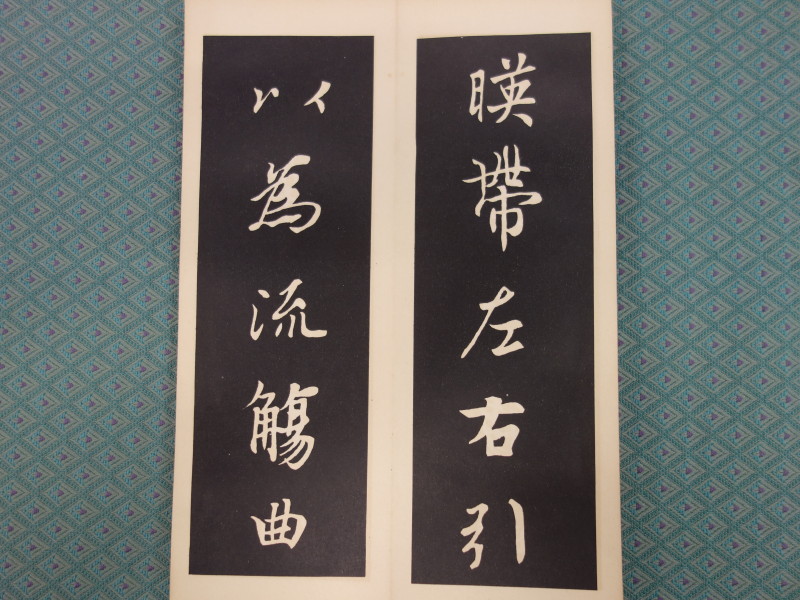 暎帶左右引
以為流觴曲